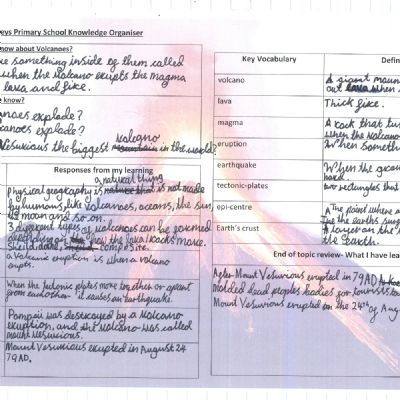 eys Primary School Knowledge Organiser
now about Volcanoes?
e something inside of them called
when the Volcano erupts the magma
lava and fire.
e know?
anoes explode?
canoes explode?
Vesuvious the biggest mountain volcano in the world?
Responses from my learning
Physical geography is nature that a natural thing is not made
by humans, like volcanoes, oceans, the sun,
the moon and so on.
3 different types of volcanoes can be formed
depending on how the lava/rocks make.
Shield, dome, composite.
a Volcanic eruption is when a volcano
erupts.
When the tectonic plates move together or apart
from eachother it causes an earthquake.
Pompeii was destroyed by a Volcano
eruption, and the Volcano was called
mount Vesuvious.
Mount Vesuvious erupted in August 24
79AD.
Key Vocabulary
Defin
volcano
A giant moun
out lava when
lava
Thick fire.
magma
A rock that tu
when the Volcano
eruption
When someth
earthquake
When the groun
hard.
tectonic-plates
two rectangles that
epi-centre
The point where a
the earths surg
Earth's crust
A layer on the
the Earth.
End of topic review- What I have lea
After Mount Vesuvious erupted in 79AD
molded dead peoples bodies for tourists to
Mount Vesuvious erupted on the 24th of Aug